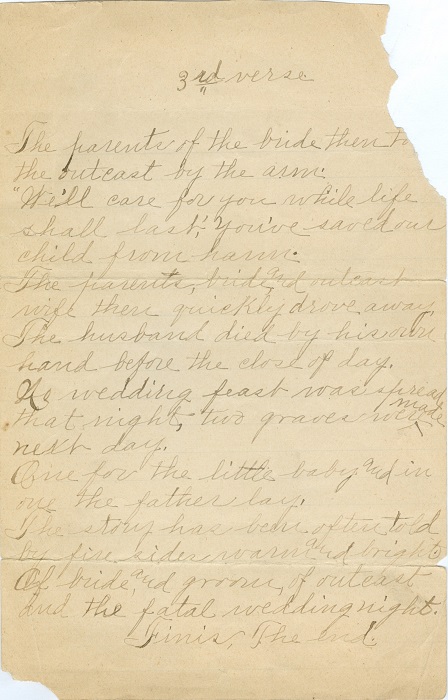 3rd verse.
The parents of the bride then
the outcast by the arm.
"We'll care for you while life
shall last", You've saved our
child from harm.
The parents, bride and outcast
wife then quickly drove away,
The husband died by his own
hand before the close of day.
No wedding feast was spread
that night, two graves were made
next day.
One for the little baby and in
one the father lay.
The story has been often told
by fire sides warm and bright
Of bride and groom, of outcast
and the fatal wedding night.
Finis, The end.